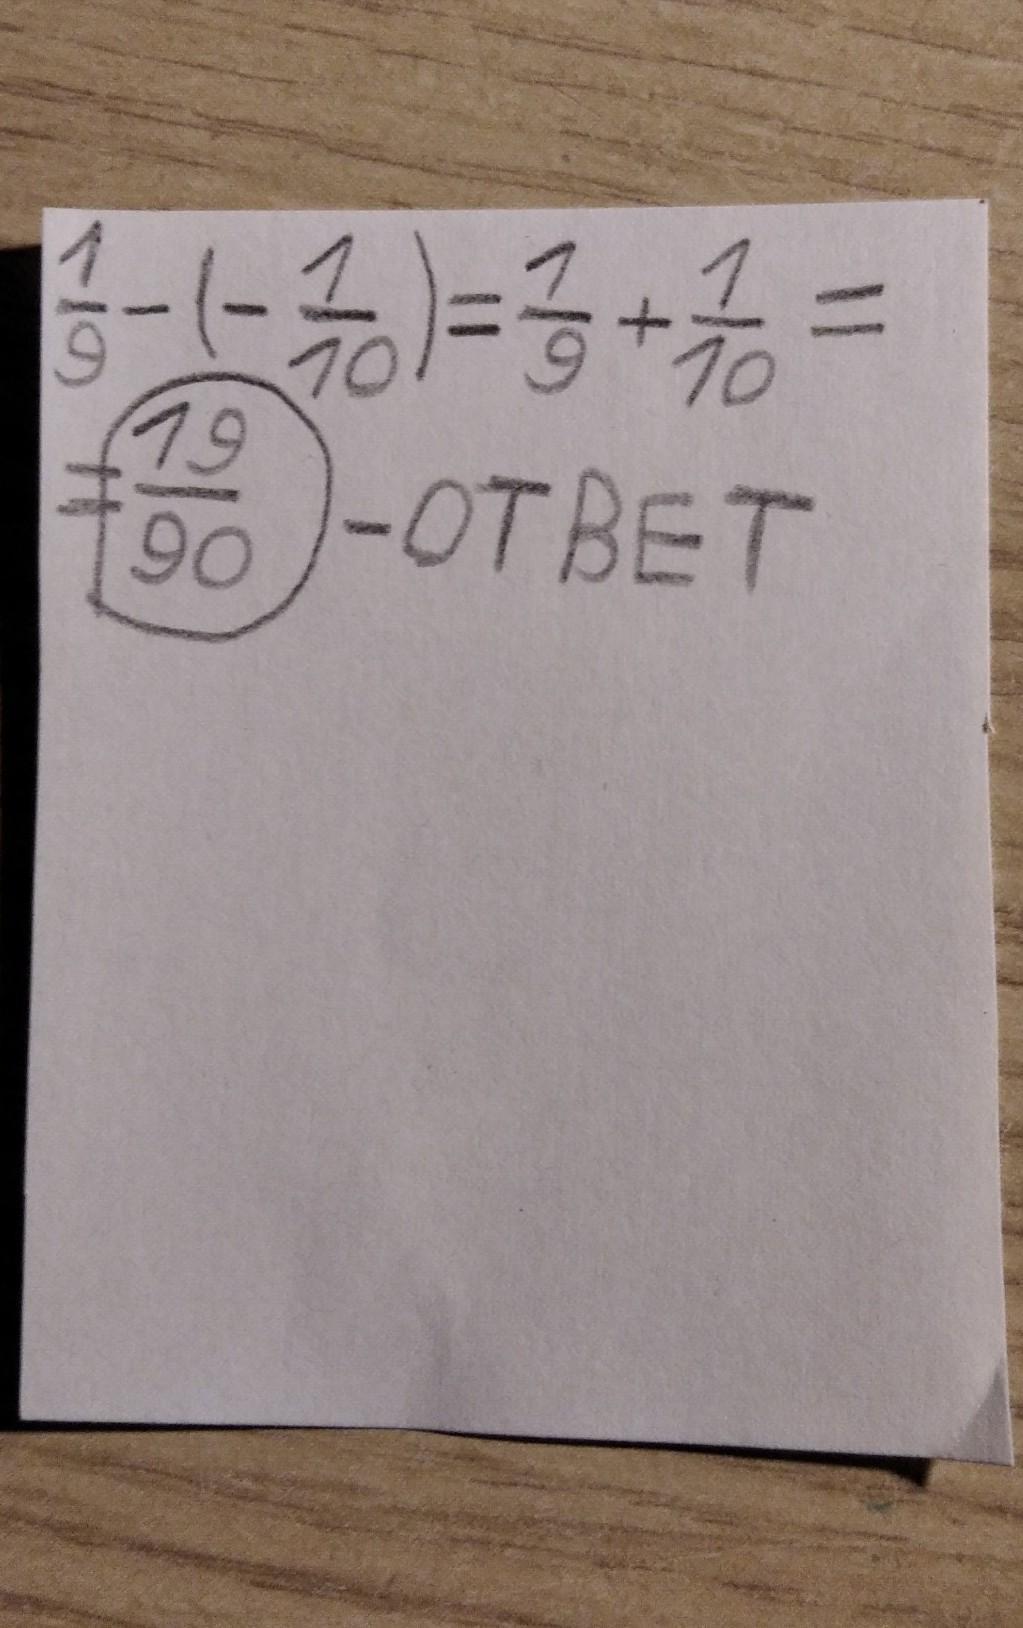 1/9 - (- 1/10) = 1/9 + 1/10 =
= 19/90 - ОТВЕТ